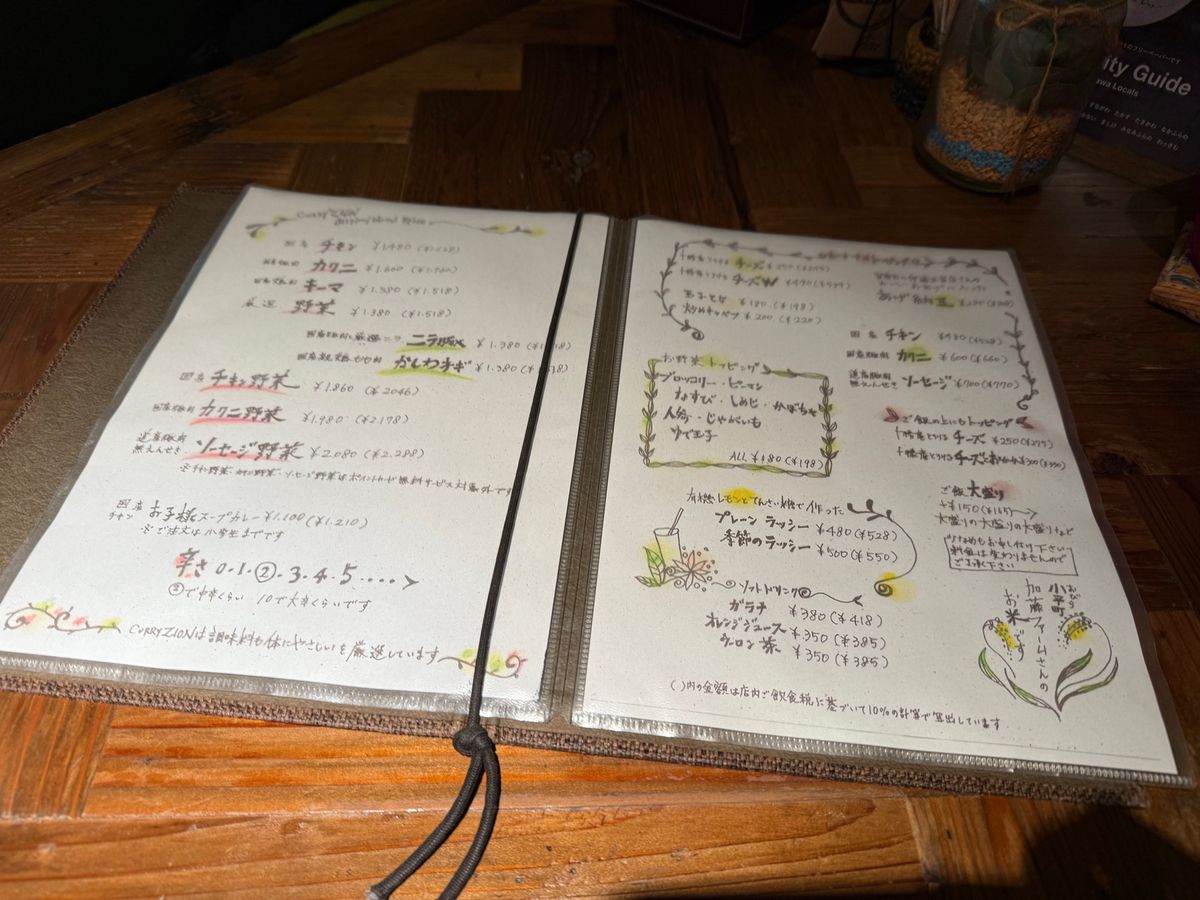 国産 チキン ¥1.480
カクニ ¥1.600 (¥1.760)
キーマ ¥1.380 (¥1.518)
厳選 野菜 ¥1.380 (¥1.518)
ニラ ¥1.380
かしわネギ ¥1.380
国産 チキン野菜 ¥1.860 (¥2.046)
カクニ野菜 ¥1.980 (¥2.178)
道産豚肉
無えんせき ソーセージ野菜 ¥2.080 (¥2.288)
国産
チキン お子様スープカレー ¥1.100 (¥1.210)
※ご注文は小学生までです
辛さ 0.1.②.3.4.5....>
②で中辛くらい 10で大辛くらいです
CURRY ZIONは調味料も体にやさしいを厳選しています
十勝とろける チーズ
十勝とろける チーズW ¥490 (¥539)
¥180 (¥198)
炒めキャベツ ¥200 (¥220)
国産 チキン
カクニ ¥600 (¥660)
道産豚肉
無えんせき ソーセージ ¥700 (¥770)
お野菜トッピング
ブロッコリー・ピーマン
なすび・しめじ・かぼちゃ
人参・じゃがいも
ゆで玉子
ALL ¥180 (¥198)
ご飯の上にもトッピング
十勝とろける チーズ ¥250 (¥275)
十勝とろける ¥300 (¥330)
ご飯 大盛り
+¥150 (¥165)→
大盛りの大盛りの大盛りなど
少なめもお申し付け下さい
料金は変わりませんので
ご了承下さい
有機レモンとてんさい糖で作った
プレーンラッシー ¥480 (¥528)
季節のラッシー ¥500 (¥550)
ソフトドリンク
ガラナ ¥380 (¥418)
オレンジジュース ¥350 (¥385)
ウーロン茶 ¥350 (¥385)
おびら
小平町
加藤ファームさんの
お米です
( )内の金額は店内ご飲食税に基づいて10%の計算で算出しています
ity Guide
awa Locals